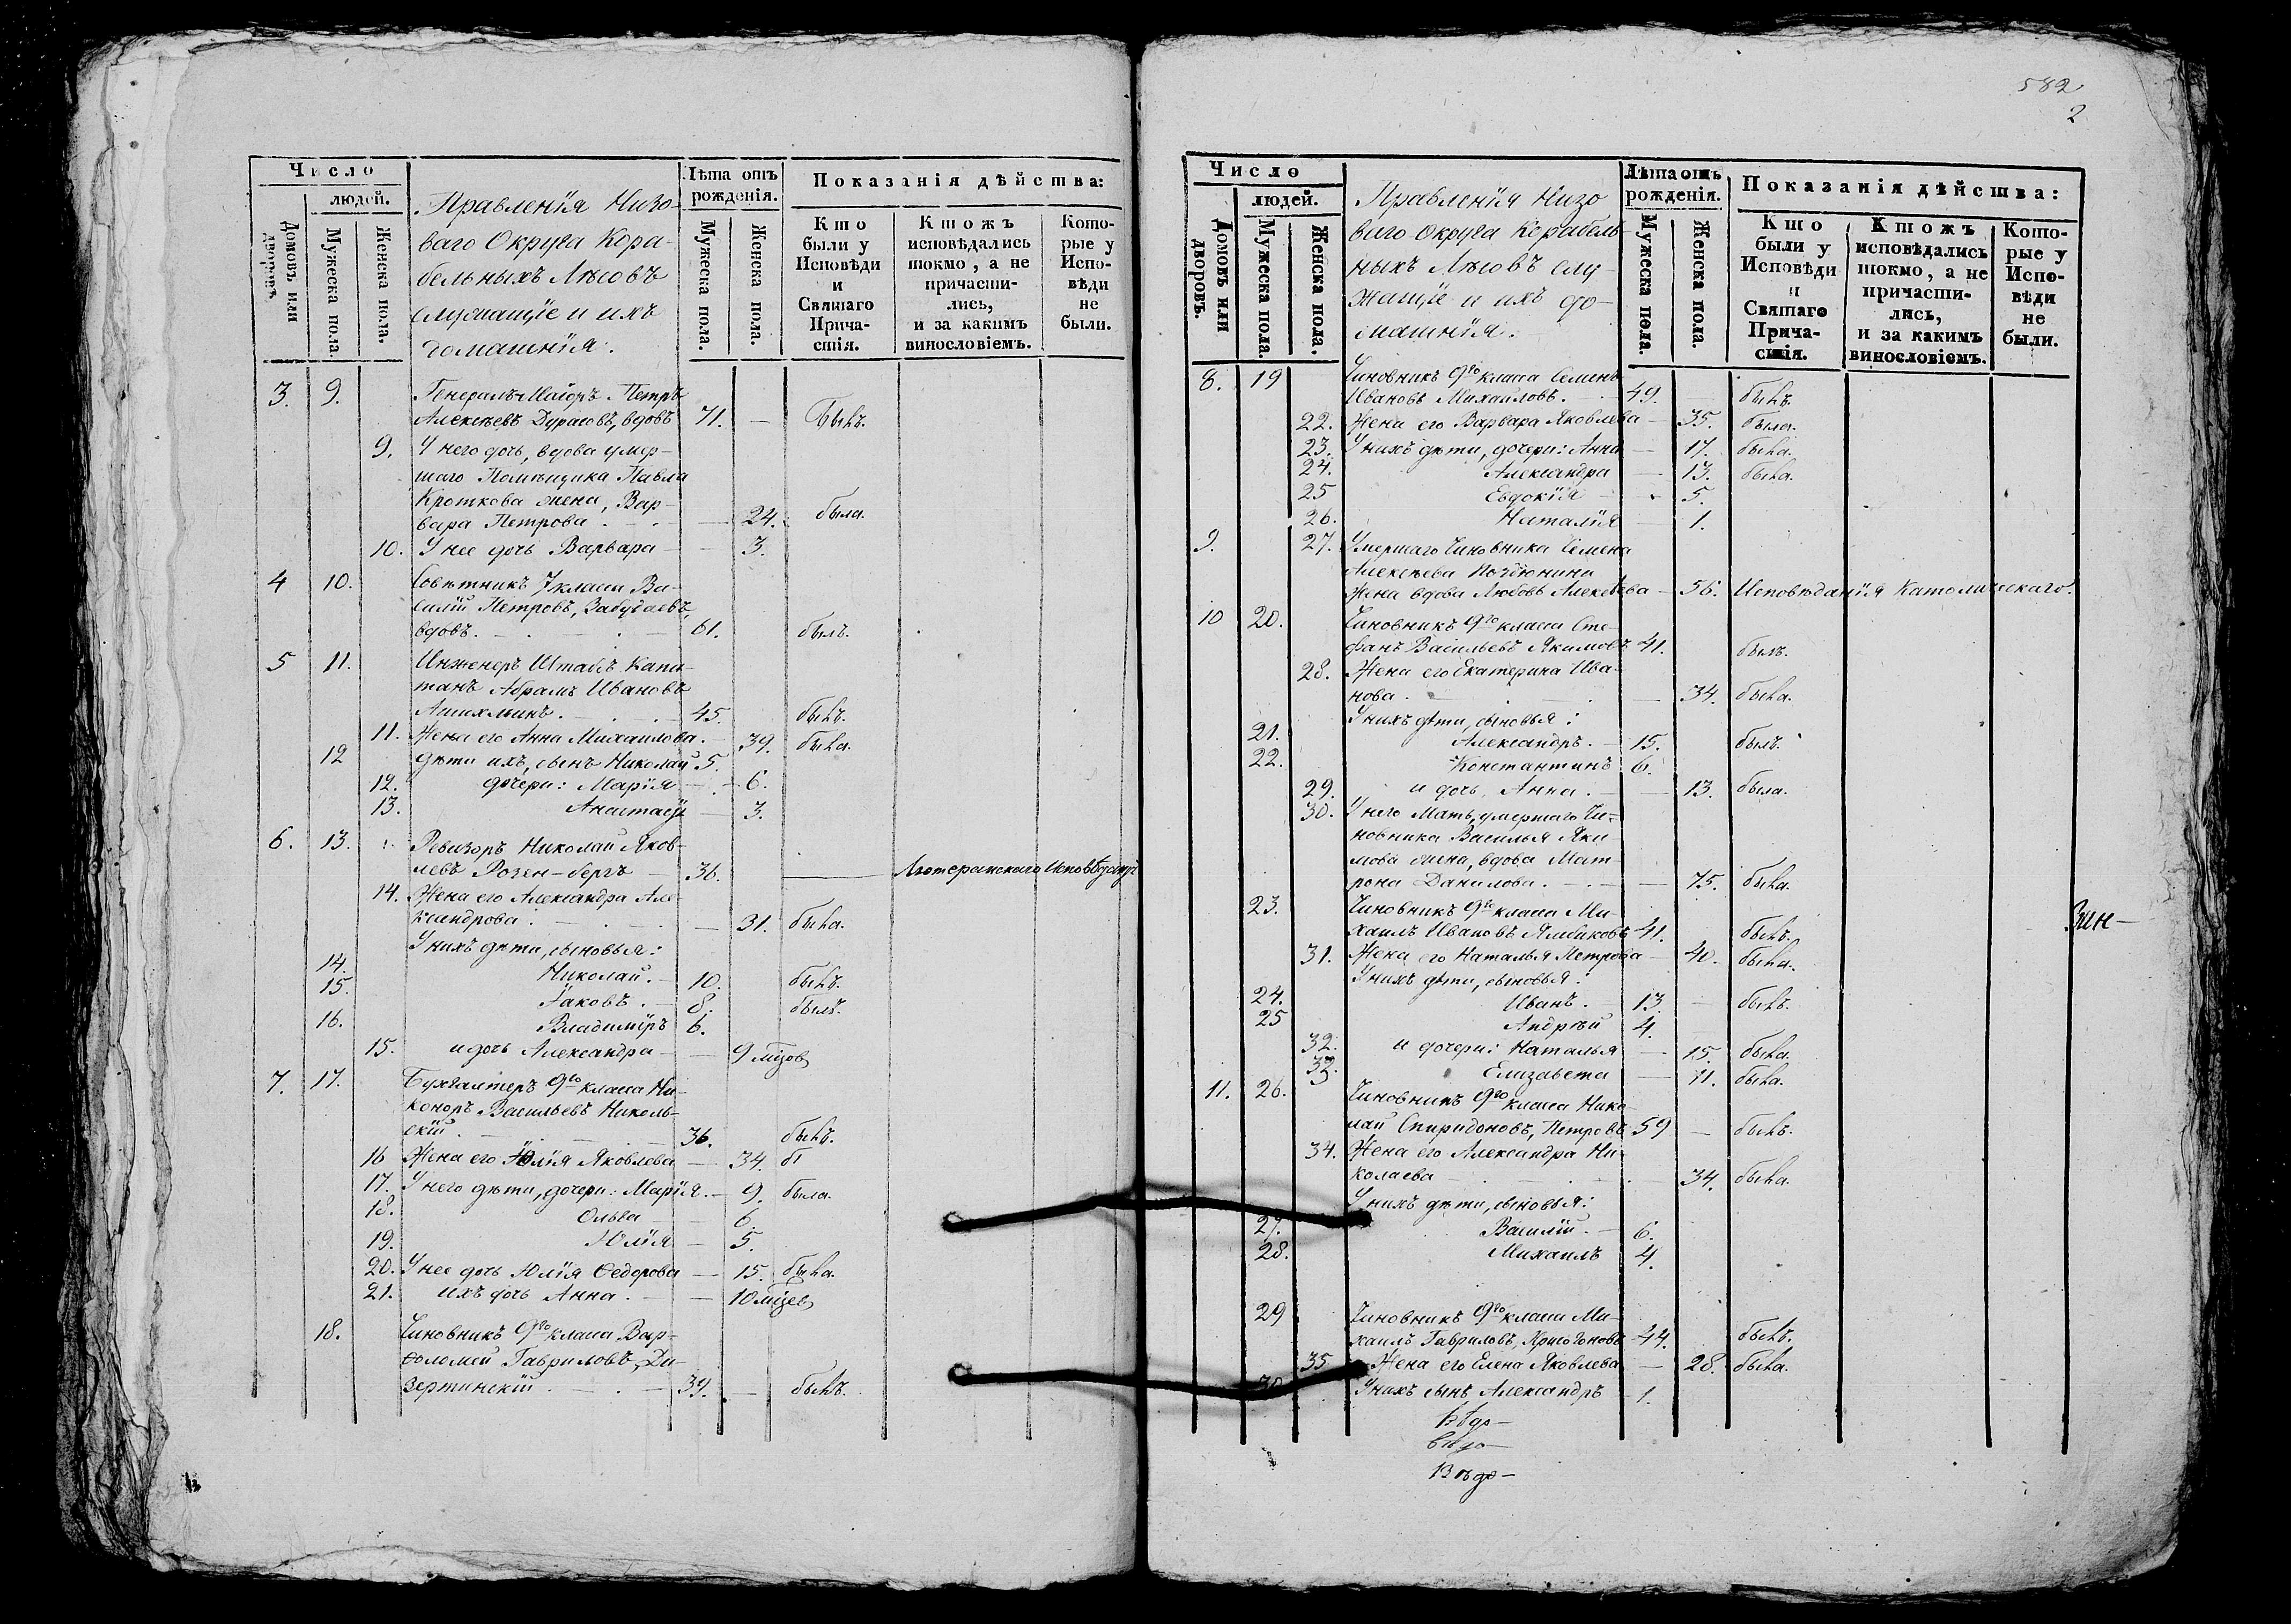 Число
людей.
Домовъ или дворовъ.
Мужеска пола.
Женска пола.
Правленія Низо-
ваго Округа Кора-
бельныхъ Лѣсовъ
служащіе и ихъ
домашнія.
Лѣта отъ
рожденія.
Мужеска пола.
Женска пола.
Показанія дѣйства:
Кто
были у
Исповѣди
и
Святаго
Прича-
стія.
Ктожъ
исповѣдались
токмо, а не
причасти-
лись,
и за какимъ
винословіемъ.
Кото-
рые у
Испо-
вѣди
не
были.
3. 9. Генералъ Маіоръ Петръ
Алексѣевъ Дурасовъ, вдовъ 71. — Былъ.
9. У него дочь, вдова умер-
шаго Помѣщика Павла
Кроткова жена, Вар-
вара Петрова . — 24. была.
10. У нее дочь Варвара — 3.
4 10. Совѣтникъ 7 класса Ва-
силій Петровъ,
вдовъ. 61. былъ.
5 11. Инженеръ Штабсъ Капи-
танъ Абрамъ Ивановъ
45. былъ.
11. Жена его Анна Михаилова. 39. была.
12 Дѣти ихъ, сынъ Николай 5.
12. дочери: Марія — 6.
13. Анастасія — 3.
6. 13. Ревизоръ Николай Яков-
левъ Розен-бергъ — 36. Лютеранскаго Исповѣданія
14. Жена его Александра Але-
ксандрова . — 31. была.
У нихъ дѣти, сыновья:
14. Николай. — 10. былъ.
15. Яковъ. — 8. былъ.
16. Владиміръ 6.
15. и дочь Александра — 9 мѣсяцов
7. 17. Бухгалтеръ 9го класса Ни-
коноръ Васильевъ Николь-
скій . — 36. былъ.
16 Жена его Юлія Яковлева — 34. б
17. У него дѣти, дочери: Марія. — 9. была.
18. Ольга — 6.
19. Юлія — 5.
20. У нее дочь Юлія Ѳедорова — 15. была.
21. ихъ дочь Анна. — 10 мѣсяцев
18. Чиновникъ 9го класса Вар-
ѳоломей Гавриловъ, Ди-
зертинскій . — 39. — былъ.
582
2
Число
людей.
Домовъ или дворовъ.
Мужеска пола.
Женска пола.
Правленія Низо
ваго Округа Корабель-
ныхъ Лѣсовъ слу-
жащіе и ихъ до-
машнія.
Лѣта отъ
рожденія.
Мужеска пола.
Женска пола.
Показанія дѣйства:
Кто
были у
Исповѣди
и
Святаго
Прича-
стія.
Ктожъ
исповѣдались
токмо, а не
причасти-
лись,
и за какимъ
винословіемъ.
Кото-
рые у
Испо-
вѣди
не
были.
8. 19 Чиновникъ 9го класса Семенъ
Ивановъ Михайловъ. 49. былъ.
22. Жена его Варвара Яковлева — 35. была.
23. У нихъ дѣти, дочери: Анна — 17. была.
24. Александра — 13. была.
25 Евдокія — 5.
26. Наталія — 1.
9. 27. Умершаго Чиновника Семена
Алексѣева Поздюнина
жена вдова Любовь Алексѣева — 56. Исповѣданія Католическаго.
10 20. Чиновникъ 9го класса Сте-
фанъ Васильевъ Якимовъ 41. былъ.
28. Жена его Екатерина Ива-
нова. — 34. была.
У нихъ дѣти, сыновья:
21. Александръ. — 15. былъ.
22. Константинъ 6.
29. и дочь, Анна. — 13. была.
30. У него Мать, умершаго Чи-
новника Василья Яки
мова жена, вдова Мат-
рона Данилова. — 75. была.
23. Чиновникъ 9го класса Ми-
хаилъ Ивановъ 41. былъ.
31. Жена его Наталья Петрова — 40. была.
У нихъ дѣти, сыновья:
24. Иванъ. — 13. — былъ.
25 Андрей 4.
32. и дочери: Наталья — 15. была.
33. Елизавета — 11. была.
11. 26. Чиновникъ 9го класса Нико-
лай Спиридоновъ, Петровъ 59 — былъ.
34. Жена его Александра Ни-
колаева — 34. была.
У нихъ дѣти, сыновья:
27. Василій. — 6.
28. Михаилъ 4.
29 Чиновникъ 9го класса Ми-
хаилъ Гавриловъ, Хрисогоновъ 44. былъ.
35 Жена его Елена Яковлева — 28. была.
30 У нихъ сынъ Александръ 1.